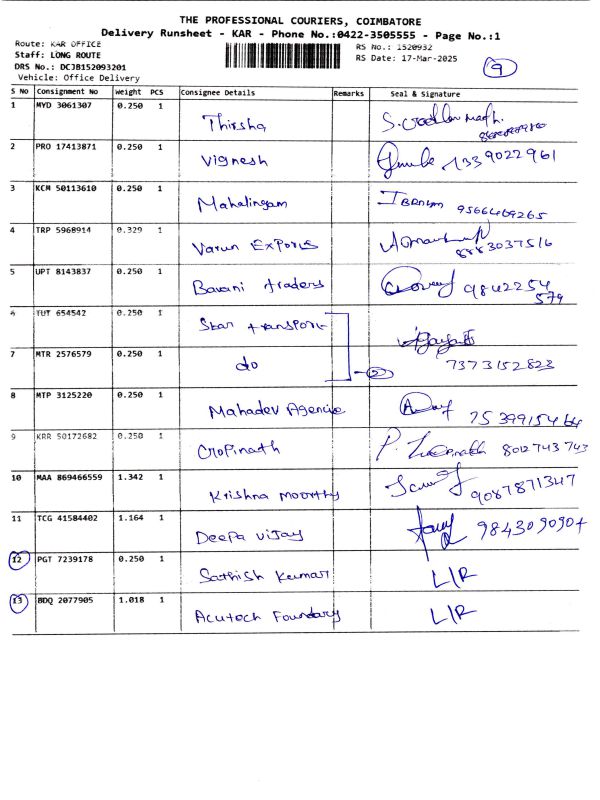 THE PROFESSIONAL COURIERS, COIMBATORE
Delivery Runsheet - KAR - Phone No.:0422-3505555 - Page No.:1
Route: KAR OFFICE RS No.: 1520932
Staff: LONG ROUTE RS Date: 17-Mar-2025
DRS No.: DCJB152093201 9
Vehicle: Office Delivery
S No Consignment No Weight PCS Consignee Details Remarks Seal & Signature
1 MYD 3061307 0.250 1 Thirsha
2 PRO 17413871 0.250 1 Vignesh 1339022961
3 KCM 50113610 0.250 1 Mahalingam 9566469265
4 TRP 5968914 0.329 1 Varun Exports 8883037516
5 UPT 8143837 0.250 1 Bavani traders 9842254
579
6 TUT 654542 0.250 1 Star transport
7 MTR 2576579 0.250 1 do 2 7373152823
8 MTP 3125220 0.250 1 Mahadev Agencie 7539915464
9 KRR 50172682 0.250 1 Gopinath 8012743743
10 MAA 869466559 1.342 1 Krishna moorthy 9087871347
11 TCG 41584402 1.164 1 Deepa vijay 9843090904
12 PGT 7239178 0.250 1 Sathish Kumar L/R
13 BDQ 2077905 1.018 1 Acutech Foundary L/R